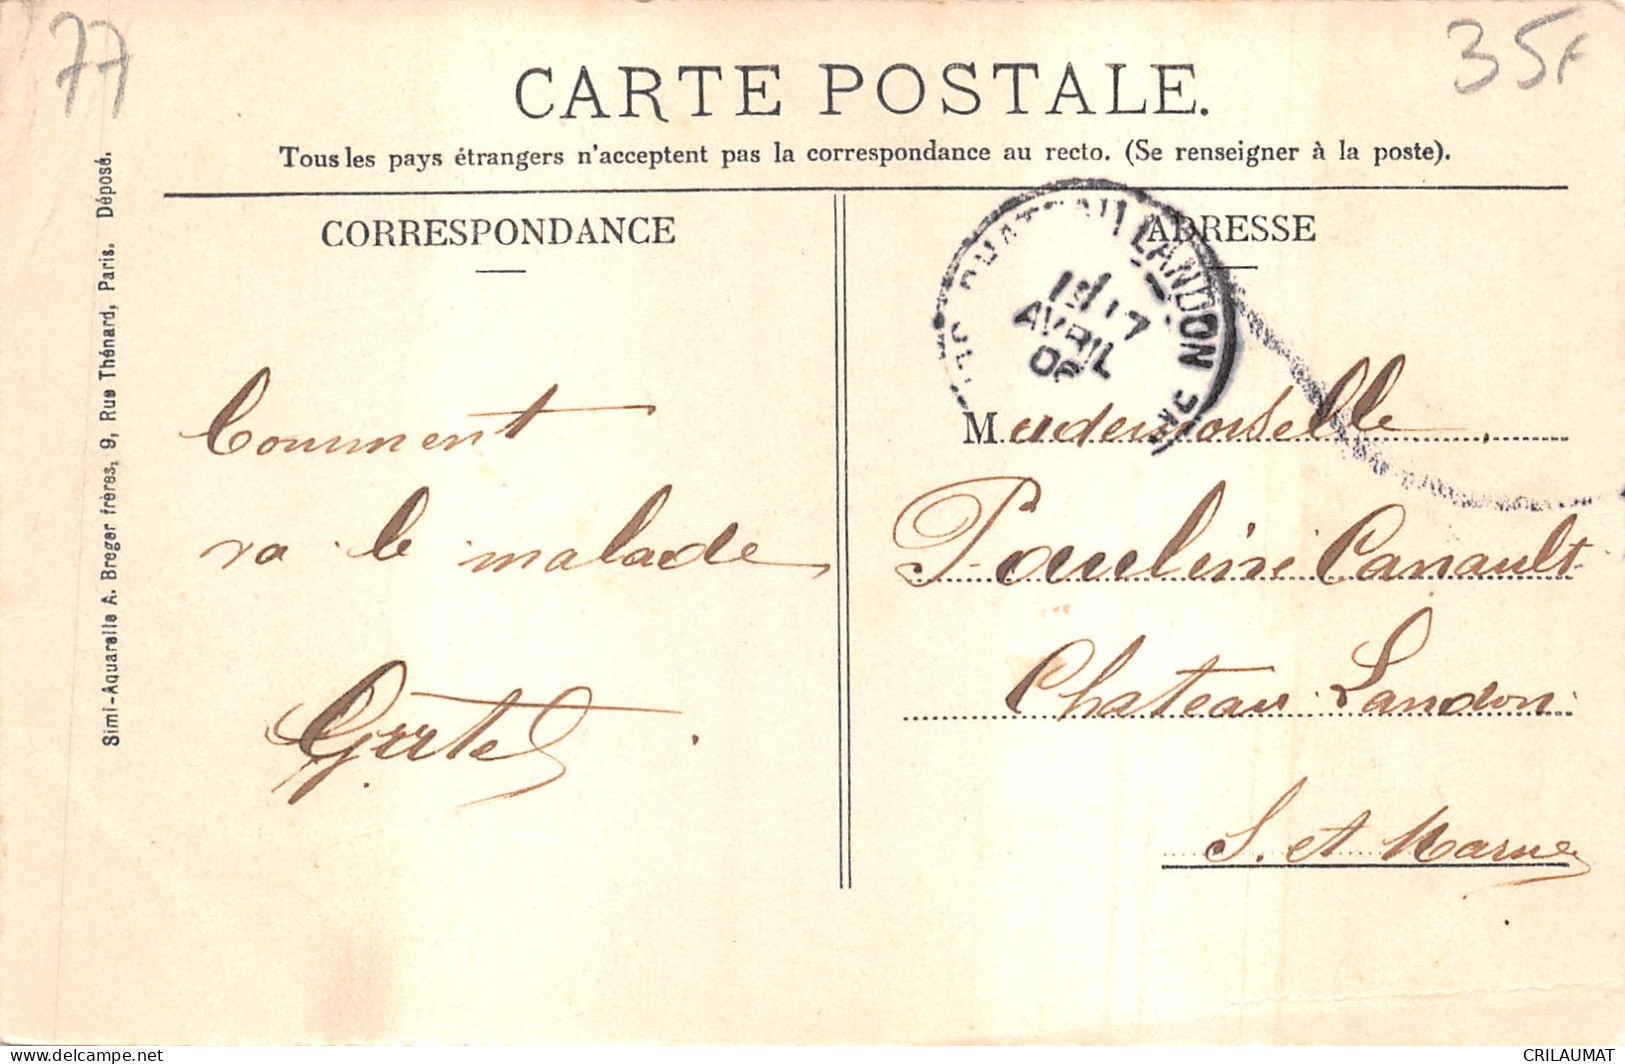 77
35F
CARTE POSTALE.
Tous les pays étrangers n'acceptent pas la correspondance au recto. (Se renseigner à la poste).
CORRESPONDANCE
ADRESSE
CHATEAU LANDON
17
AVRIL
Comment
va le malade
Mademoiselle
Pauline Canault
Chateau Landon
S. et Marne
Simi-Aquarelle A. Breger frères, 9, Rue Thénard, Paris. Déposé.
CRILAUMAT